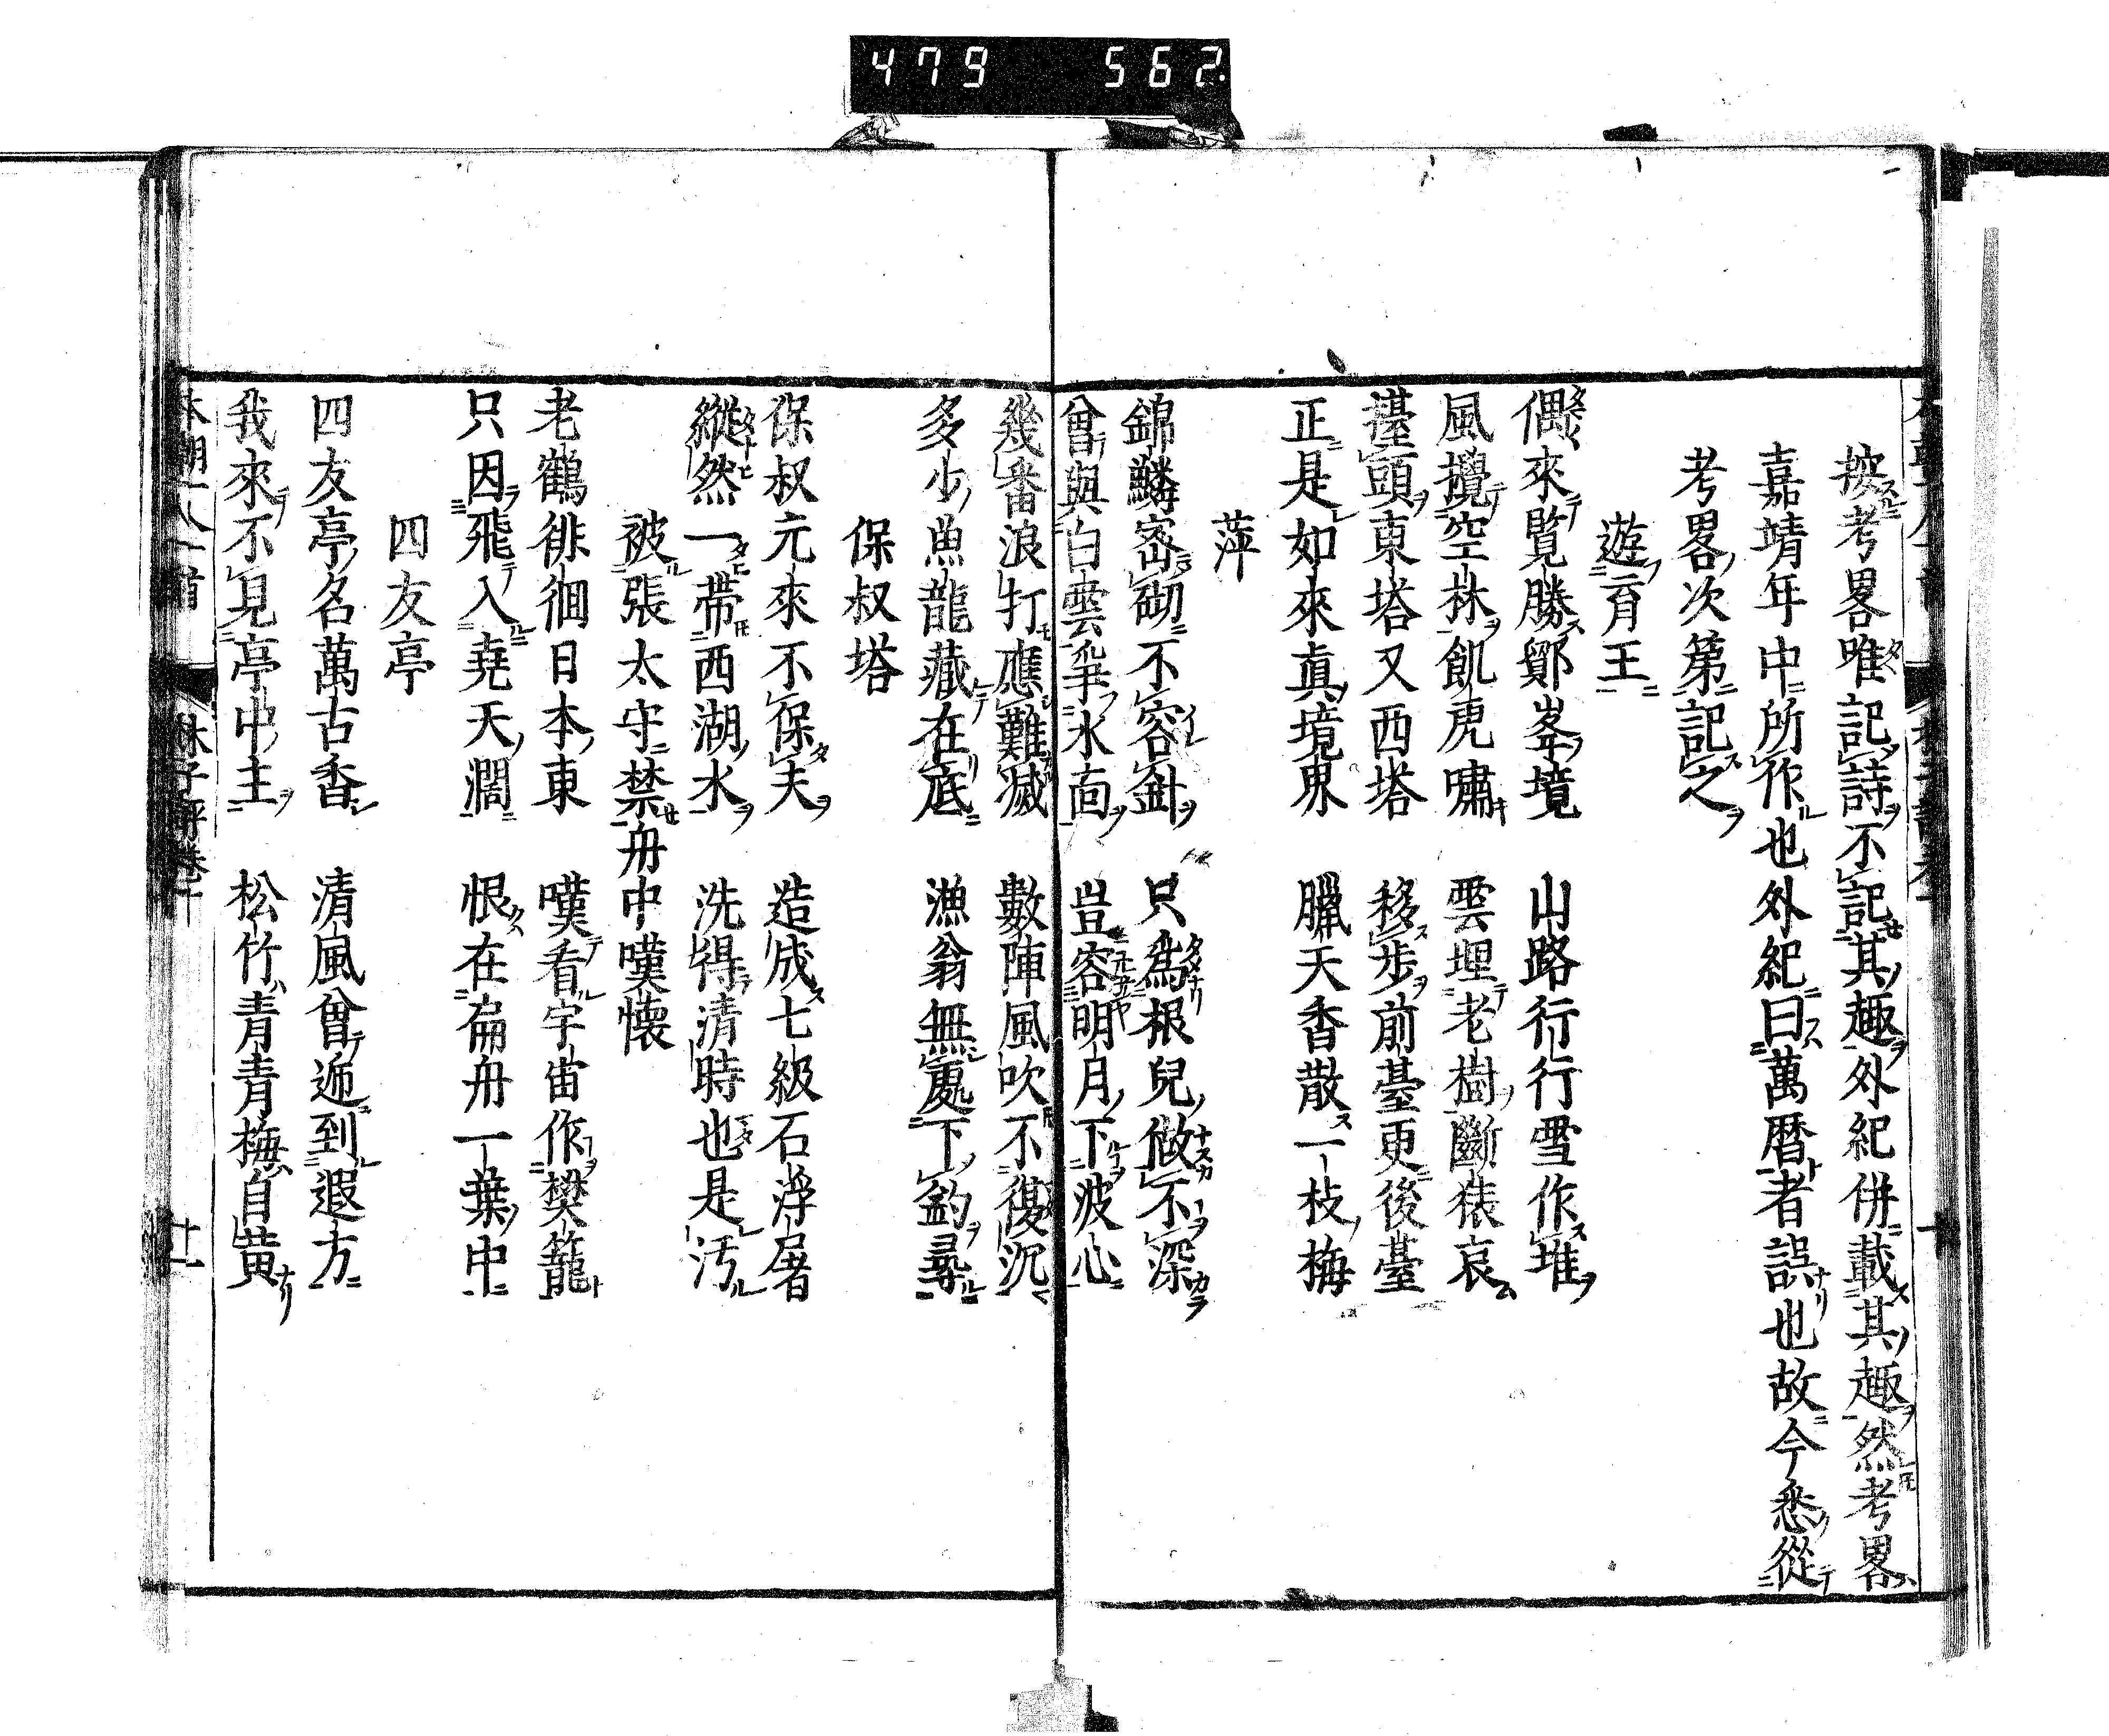 479 562
按考畧唯記詩不記其趣外紀併載其趣然考畧
嘉靖年中所作也外紀曰萬暦者誤也故今悉從
考畧次第記之
遊育王
偶來覽勝鄮峯境 山路行行雪作堆
風攪空林飢虎嘯 雲埋老樹斷猿哀
擡頭東塔又西塔 移步前臺更後臺
正是如來眞境界 臘天香散一枝梅
萍
錦鱗密砌不容針 只爲根兒做不深
曾與白雲爭水面 豈容明月下波心
幾番浪打應難滅 數陣風吹不復沉
多少魚龍藏在底 漁翁無處下釣尋
保叔塔
保叔元來不保夫 造成七級石浮屠
縱然一帶西湖水 洗得清時也是汚
被張太守禁舟中嘆懷
老鶴徘徊日本東 嘆看宇宙作樊籠
只因飛入堯天濶 恨在扁舟一葉中
四友亭
四友亭名萬古香 清風曾遞到遐方
我來不見亭中主 松竹青青梅自黄
本朝一人一首 林子評卷十 十一